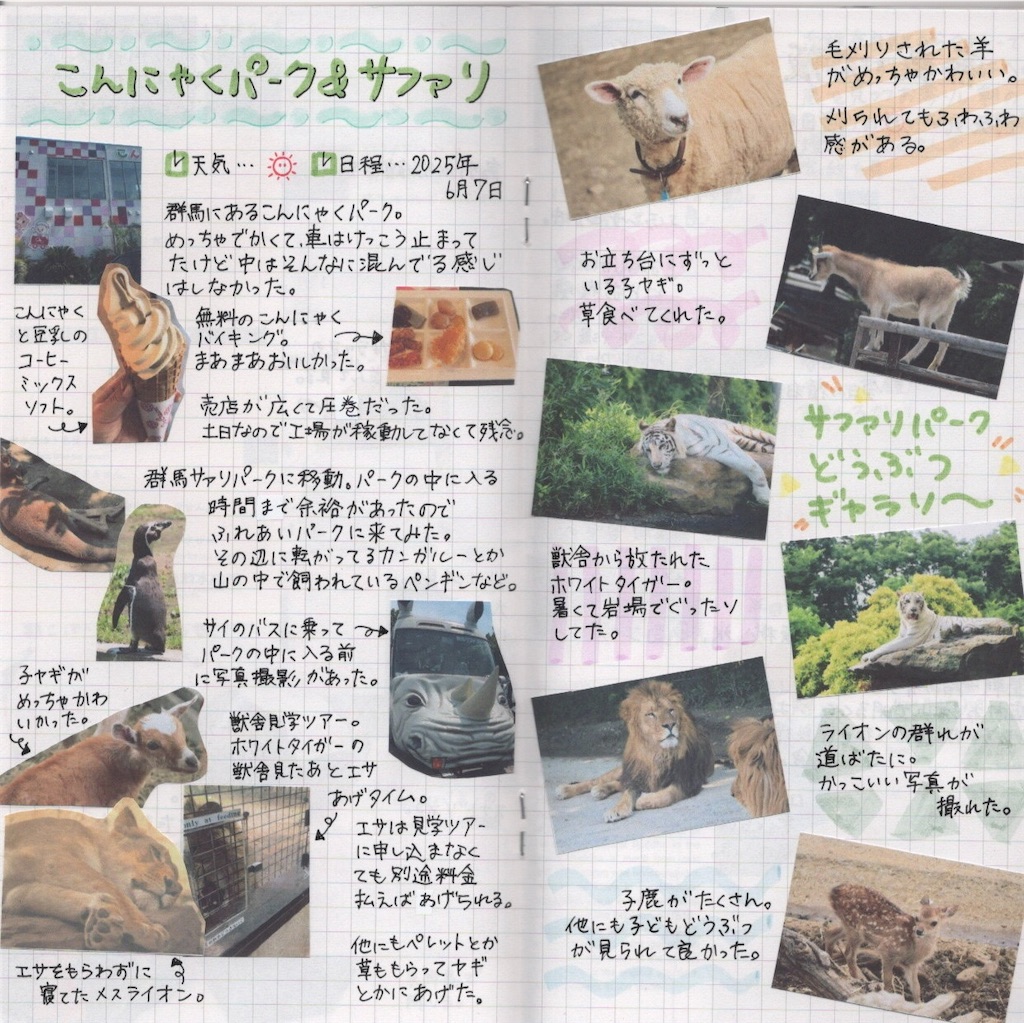 こんにゃくパーク&サファリ
天気… 日程…2025年
6月7日
群馬にあるこんにゃくパーク。
めっちゃでかくて、車はけっこう止まって
たけど中はそんなに混んでる感じ
はしなかった。
こんにゃく
と豆乳の
コーヒー
ミックス
ソフト。
無料のこんにゃく
バイキング。
まあまあおいしかった。
売店が広くて圧巻だった。
土日なので工場が稼動してなくて残念。
群馬サファリパークに移動。パークの中に入る
時間まで余裕があったので
ふれあいパークに来てみた。
その辺に転がってるカンガルーとか
山の中で飼われているペンギンなど。
サイのバスに乗って
パークの中に入る前
に写真撮影があった。
子ヤギが
めっちゃかわ
いかった。
獣舎見学ツアー。
ホワイトタイガーの
獣舎見たあとエサ
あげタイム。
only at feeding
エサは見学ツアー
に申し込まなく
ても別途料金
払えばあげられる。
エサをもらわずに
寝てたメスライオン。
他にもペレットとか
草ももらってヤギ
とかにあげた。
毛刈りされた羊
がめっちゃかわいい。
刈られてもふわふわ
感がある。
お立ち台にずっと
いる子ヤギ。
草食べてくれた。
サファリパーク
どうぶつ
ギャラリ〜
獣舎から放たれた
ホワイトタイガー。
暑くて岩場でぐったり
してた。
ライオンの群れが
道ばたに。
かっこいい写真が
撮れた。
子鹿がたくさん。
他にも子どもどうぶつ
が見られて良かった。